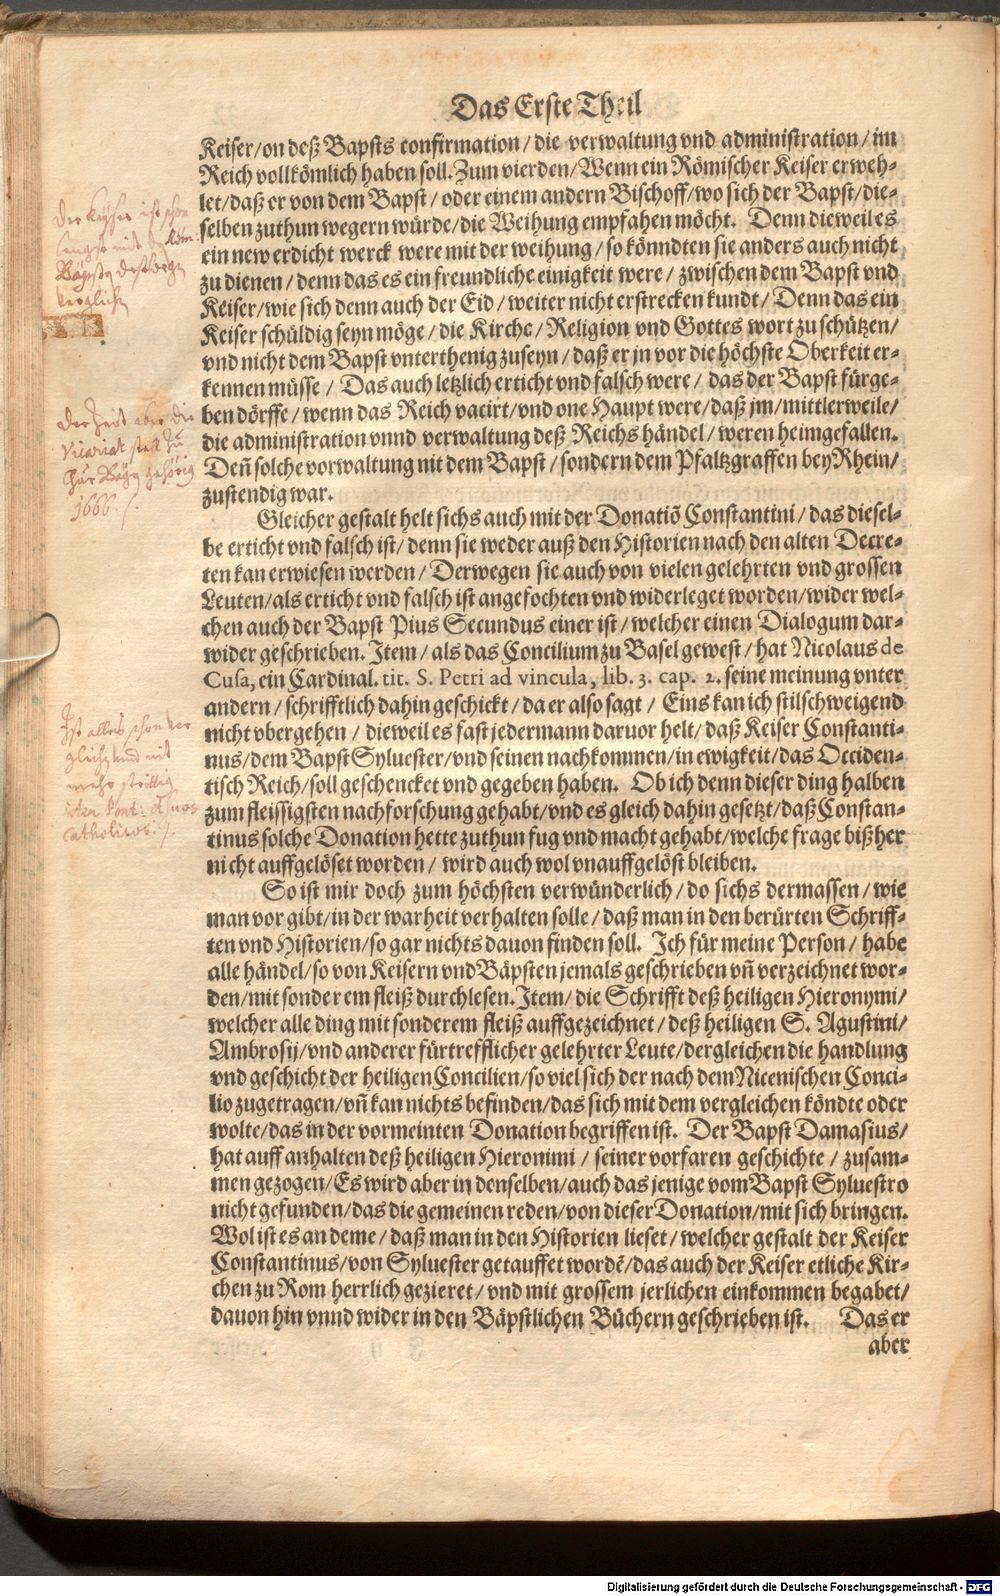 Das Erste Theil
Keiser/on deß Bapsts confirmation/die verwaltung vnd administration/im
Reich vollkömlich haben soll. Zum vierden/Wenn ein Römischer Keiser erweh-
let/daß er von dem Bapst/oder einem andern Bischoff/wo sich der Bapst/die-
selben zuthun wegern würde/die Weihung empfahen möcht. Denn dieweil es
ein new erdicht werck were mit der weihung/so könndten sie anders auch nicht
zu dienen/denn das es ein freundliche einigkeit were/zwischen dem Bapst vnd
Keiser/wie sich denn auch der Eid/weiter nicht erstrecken kundt/Denn das ein
Keiser schüldig seyn möge/die Kirche/Religion vnd Gottes wort zu schützen/
vnd nicht dem Bapst vnterthenig zuseyn/daß er jn vor die höchste Oberkeit er-
kennen müsse/Das auch letzlich erticht vnd falsch were/das der Bapst fürge-
ben dörffe/wenn das Reich vacirt/vnd one Haupt were/daß jm/mittlerweile/
die administration vnnd verwaltung deß Reichs händel/weren heimgefallen.
Deñ solche vorwaltung nit dem Bapst/sondern dem Pfaltzgraffen bey Rhein/
zustendig war.
Gleicher gestalt helt sichs auch mit der Donatiõ Constantini/das diesel-
be erticht vnd falsch ist/denn sie weder auß den Historien nach den alten Decre-
ten kan erwiesen werden/Derwegen sie auch von vielen gelehrten vnd grossen
Leuten/als erticht vnd falsch ist angefochten vnd widerleget worden/wider wel-
chen auch der Bapst Pius Secundus einer ist/welcher einen Dialogum dar-
wider geschrieben. Item/als das Concilium zu Basel gewest/hat Nicolaus de
Cusa, ein Cardinal. tit. S. Petri ad vincula, lib. 3. cap. 2. seine meinung vnter
andern/schrifftlich dahin geschickt/da er also sagt/Eins kan ich stilschweigend
nicht vbergehen/dieweil es fast jedermann daruor helt/daß Keiser Constanti-
nus/dem Bapst Syluester/vnd seinen nachkommen/in ewigkeit/das Occiden-
tisch Reich/soll geschencket vnd gegeben haben. Ob ich denn dieser ding halben
zum fleissigsten nachforschung gehabt/vnd es gleich dahin gesetzt/daß Constan-
tinus solche Donation hette zuthun fug vnd macht gehabt/welche frage bißher
nicht auffgelöset worden/wird auch wol vnauffgelöst bleiben.
So ist mir doch zum höchsten verwünderlich/do sichs dermassen/wie
man vor gibt/in der warheit verhalten solle/daß man in den berürten Schriff-
ten vnd Historien/so gar nichts dauon finden soll. Ich für meine Person/habe
alle händel/so von Keisern vnd Bäpsten jemals geschrieben vñ verzeichnet wor-
den/mit sonderem fleiß durchlesen. Item/die Schrifft deß heiligen Hieronymi/
welcher alle ding mit sonderem fleiß auffgezeichnet/deß heiligen S. Agustini/
Ambrosij/vnd anderer fürtrefflicher gelehrter Leute/dergleichen die handlung
vnd geschicht der heiligen Concilien/so viel sich der nach dem Nicenischen Conci-
lio zugetragen/vñ kan nichts befinden/das sich mit dem vergleichen köndte oder
wolte/das in der vormeinten Donation begriffen ist. Der Bapst Damasius/
hat auff anhalten deß heiligen Hieronimi/seiner vorfaren geschichte/zusam-
men gezogen/Es wird aber in denselben/auch das jenige vom Bapst Syluestro
nicht gefunden/das die gemeinen reden/von dieser Donation/mit sich bringen.
Wol ist es an deme/daß man in den Historien lieset/welcher gestalt der Keiser
Constantinus/von Syluester getauffet wordẽ/das auch der Keiser etliche Kir-
chen zu Rom herrlich gezieret/vnd mit grossem jerlichen einkommen begabet/
dauon hin vnnd wider in den Bäpstlichen Büchern geschrieben ist. Das er
aber
Vicariat
1666
Catholicos
Digitalisierung gefördert durch die Deutsche Forschungsgemeinschaft - DFG